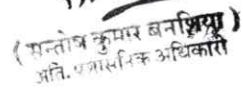 ( सन्तोष कुमार बनशिया )
अति. प्रशासनिक अधिकारी